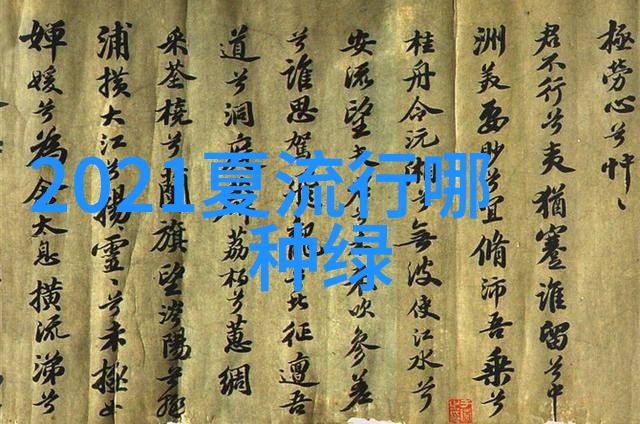 2021夏流行哪
种绿
極勞心兮忡〻
君不行兮夷猶蹇誰留兮中
洲美要眇兮宜脩沛吾乘兮
桂舟令沅湘兮無波使江水兮
安流望夫君兮 吹參差
兮誰思駕 兮北征邅吾
道兮洞庭 荔柏兮蕙綢
荃橈兮蘭旗望涔陽兮極
浦橫大江兮揚靈〻兮未極女
嬋媛兮為余太息橫流涕兮